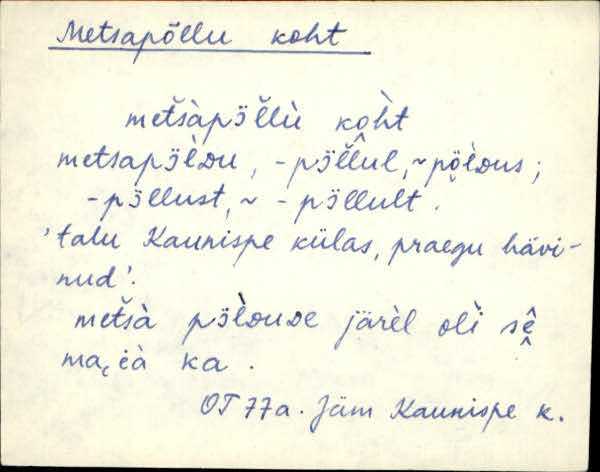 Metsapõllu koht
met̆sàpɔ̈l̆lù kòh̀t
metsapɔ̈l̀Du, -pɔ̈l̆lul, ~pɔ̈l̀Dus;
-pɔ̈llust, ~ -pɔ̈llult.
'talu Kaunispe külas, praegu hävi-
nud'.
met̆sà pɔ̈l̀DuDe järèl oli sê
ma, ià ka.
OT 77a. Jäm Kaunispe k.